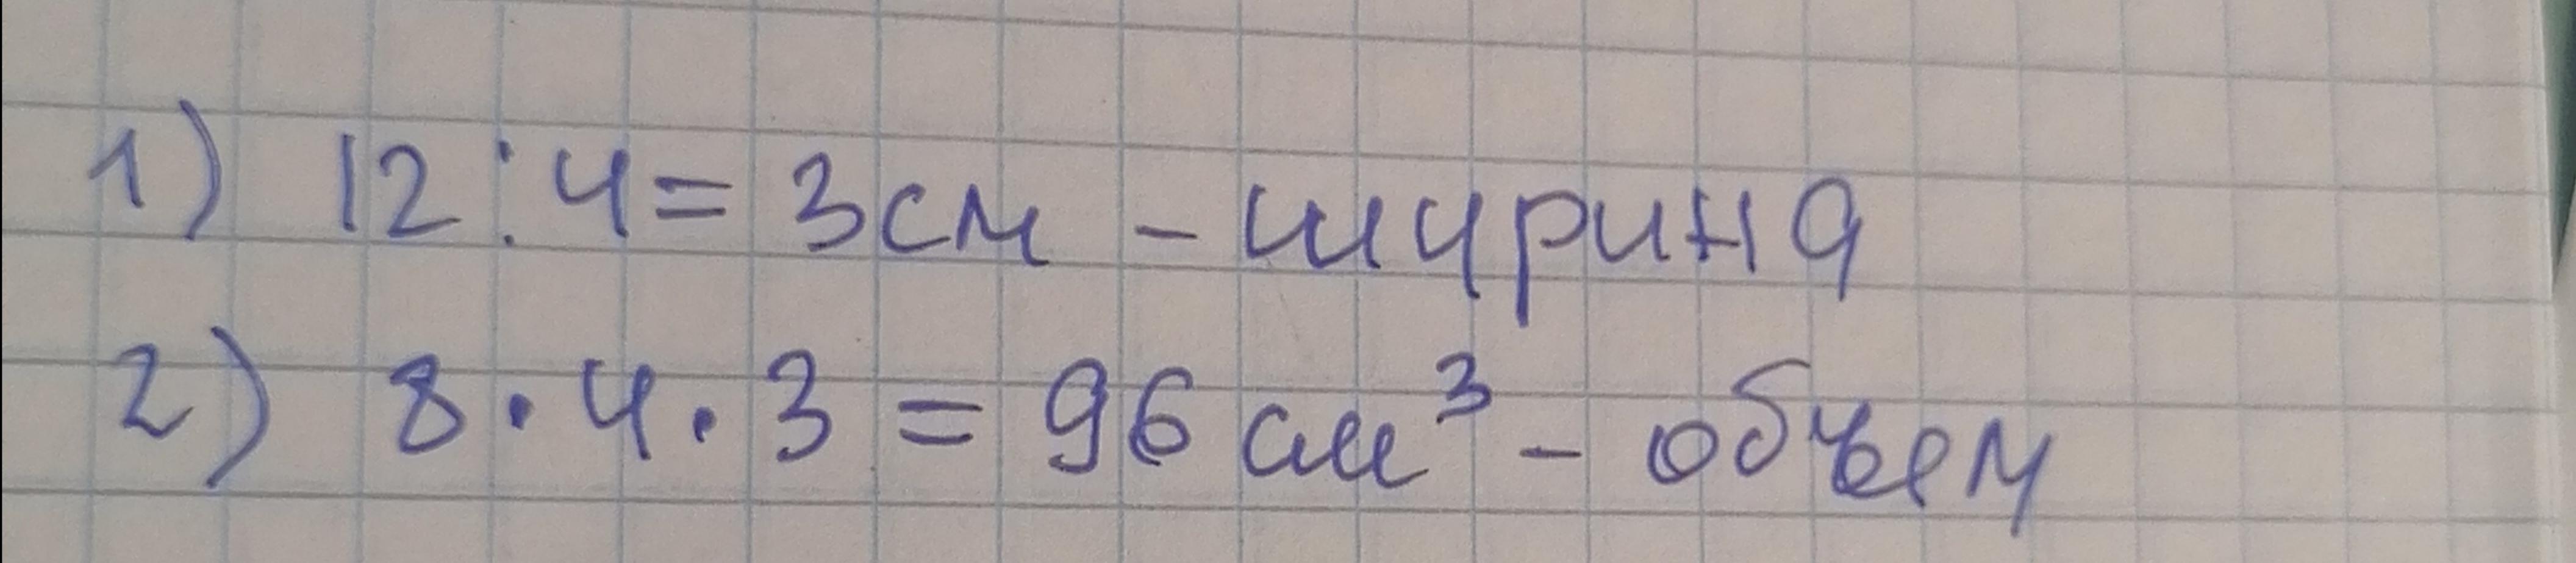 1) 12 : 4 = 3 см - ширина
2) 8 · 4 · 3 = 96 см³ - объем